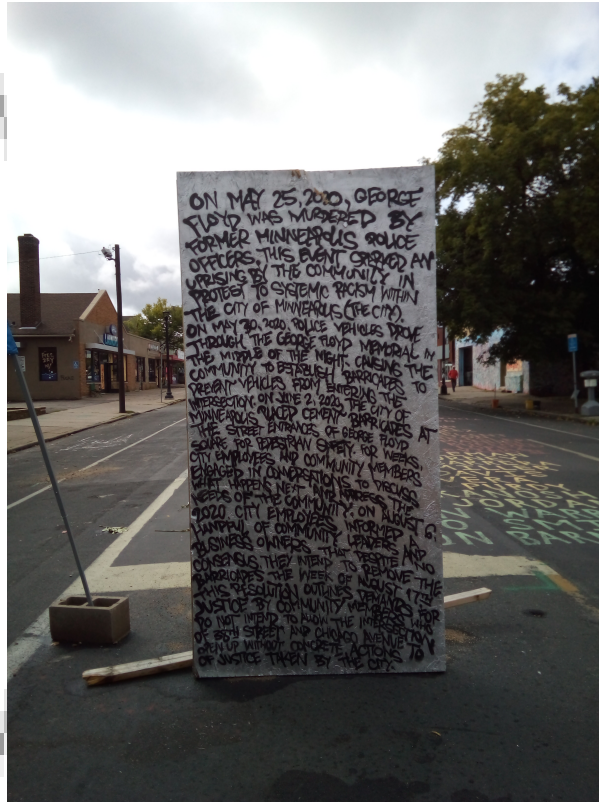 ON MAY 25, 2020, GEORGE
FLOYD WAS MURDERED BY
FORMER MINNEAPOLIS POLICE
OFFICERS. THIS EVENT SPARKED AN
UPRISING BY THE COMMUNITY IN
PROTEST TO SYSTEMIC RACISM WITHIN
THE CITY OF MINNEAPOLIS (THE CITY).
ON MAY 30, 2020, POLICE VEHICLES DROVE
THROUGH THE GEORGE FLOYD MEMORIAL IN
THE MIDDLE OF THE NIGHT, CAUSING THE
COMMUNITY TO ESTABLISH BARRICADES TO
PREVENT VEHICLES FROM ENTERING THE
INTERSECTION. ON JUNE 2, 2020, THE CITY OF
MINNEAPOLIS PLACED CEMENT BARRICADES AT
THE STREET ENTRANCES OF GEORGE FLOYD
SQUARE FOR PEDESTRIAN SAFETY. FOR WEEKS,
CITY EMPLOYEES AND COMMUNITY MEMBERS
ENGAGED IN CONVERSATIONS TO DISCUSS
WHAT HAPPENS NEXT AND ADDRESS THE
NEEDS OF THE COMMUNITY. ON AUGUST 6,
2020 CITY EMPLOYEES INFORMED A
HANDFUL OF COMMUNITY LEADERS AND
BUSINESS OWNERS THAT DESPITE NO
CONSENSUS, THEY INTEND TO REMOVE THE
BARRICADES THE WEEK OF AUGUST 17TH.
THIS RESOLUTION OUTLINES DEMANDS FOR
JUSTICE BY COMMUNITY MEMBERS WHO
DO NOT INTEND TO ALLOW THE INTERSECTION
OF 38TH STREET AND CHICAGO AVENUE TO
OPEN UP WITHOUT CONCRETE ACTIONS
OF JUSTICE TAKEN BY THE CITY.